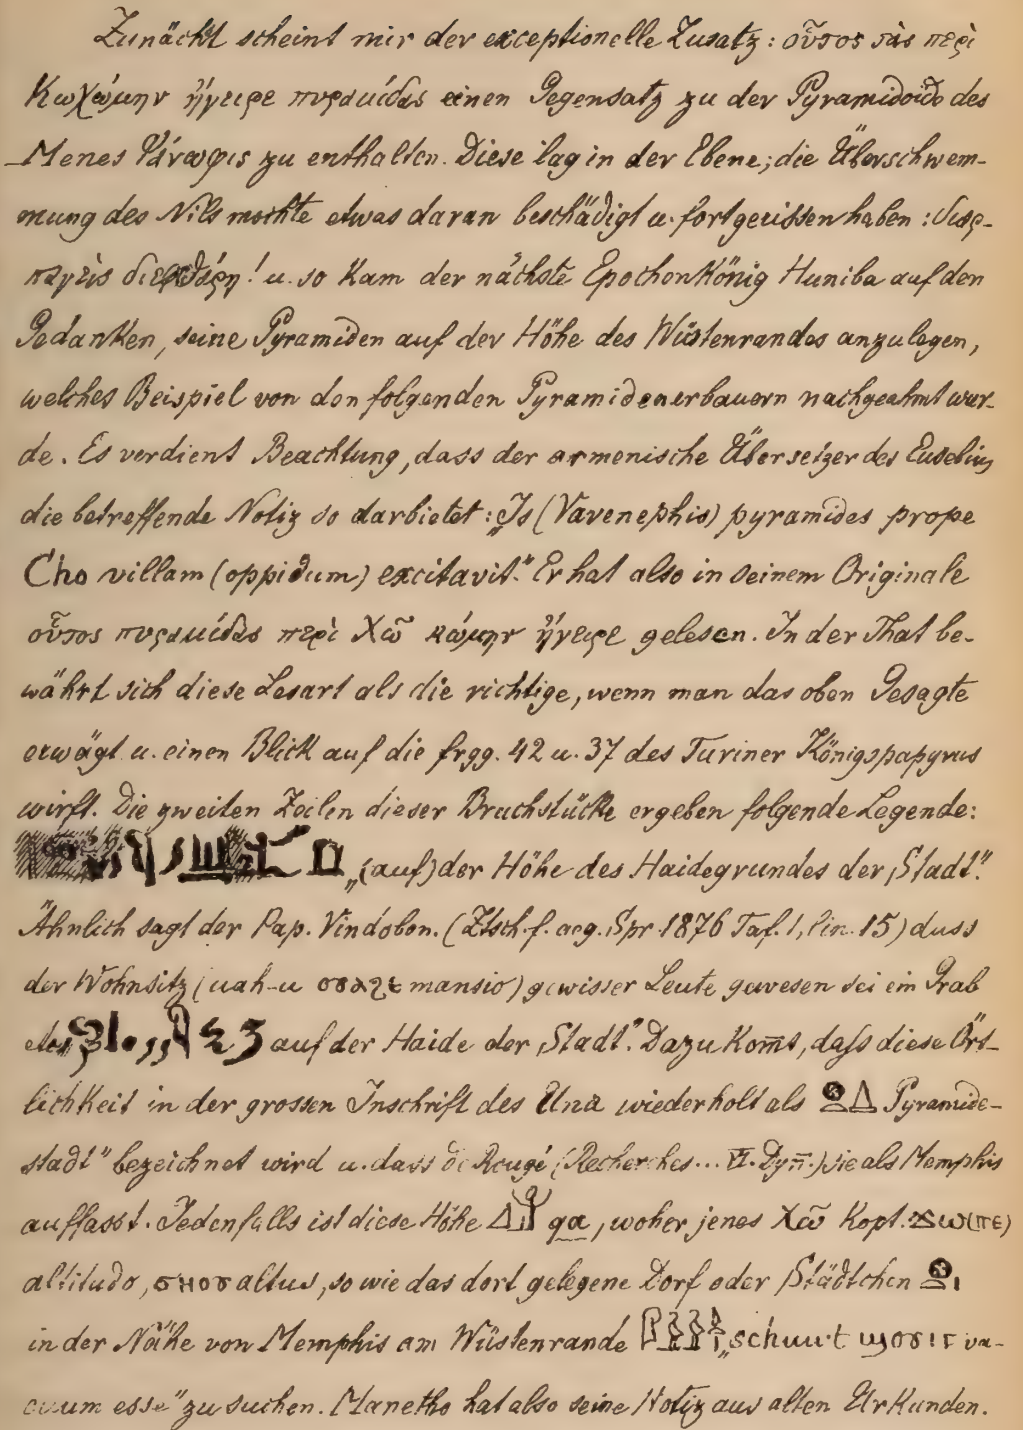 Zunächst scheint mir der exceptionelle Zusatz: οὗτος τὰς περὶ
Κωχώμην ἤγειρε πυραμίδας einen Gegensatz zu der Pyramidoide des
Menes zu enthalten. Diese lag in der Ebene; die Überschwem-
mung des Nils mochte etwas daran beschädigt u. fortgerissen haben:
! u. so kam der nächste Epochenkönig Huniba auf den
Gedanken, seine Pyramiden auf der Höhe des Wüstenrandes anzulegen,
welches Beispiel von den folgenden Pyramidenerbauern nachgeahmt wur-
de. Es verdient Beachtung, dass der armenische Übersetzer des Eusebius
die betreffende Notiz so darbietet: „Is (Vavenephis) pyramides prope
Cho villam (oppidum) excitavit." Er hat also in seinem Originale
οὗτος πυραμίδας περὶ Χῶ κώμην ἤγειρε gelesen. In der That be-
währt sich diese Lesart als die richtige, wenn man das oben Gesagte
erwägt u. einen Blick auf die frgg. 42 u. 37 des Turiner Königspapyrus
wirft. Die zweiten Zeilen dieser Bruchstücke ergeben folgende Legende:
„(auf) der Höhe des Haidegrundes der Stadt".
Ähnlich sagt der Pap. Vindobon. (Ztsch. f. aeg. Spr. 1876 Taf. 1, lin. 15) dass
der Wohnsitz (uah-u mansio) gewisser Leute gewesen sei ein Grab
auf der Haide der Stadt". Dazu kom̄t, daſs diese Ört-
lichkeit in der grossen Inschrift des Una wiederholt als Pyramide-
stadt" bezeichnet wird u. dass de Rougé (Recherches... VI. Dyn.) sie als Memphis
auffasst. Jedenfalls ist diese Höhe qa, woher jenes Χῶ kopt. ϫⲱ(ⲡⲉ)
altitudo, altus, so wie das dort gelegene Dorf oder Städtchen
in der Nähe von Memphis am Wüstenrande va-
cuum esse" zu suchen. Manetho hat also seine Notiz aus alten Urkunden.